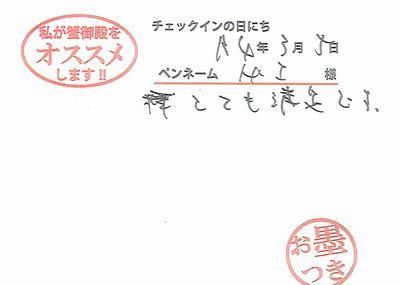 私が蟹御殿を
オススメ
します!!
チェックインの日にち
年3月 日
ペンネーム 様
とても満足です。
お墨
つき